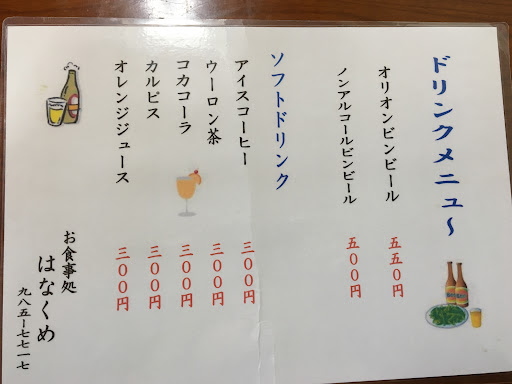 ドリンクメニュ〜
オリオンビンビール 五五０円
ノンアルコールビンビール 五００円
ソフトドリンク
アイスコーヒー 三００円
ウーロン茶 三００円
コカコーラ 三００円
カルピス 三００円
オレンジジュース 三００円
お食事処
はなくめ
九八五ー七七一七